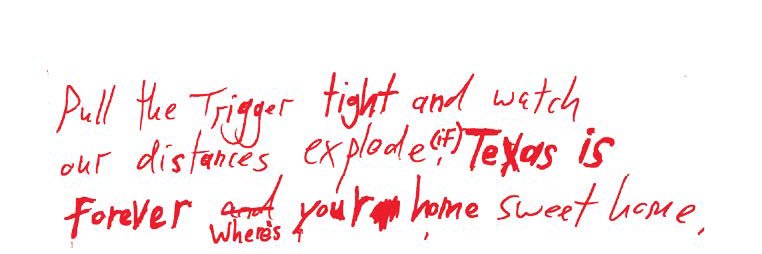 Pull the Trigger tight and watch
our distances explode. (if) Texas is
forever and where's your home sweet home.